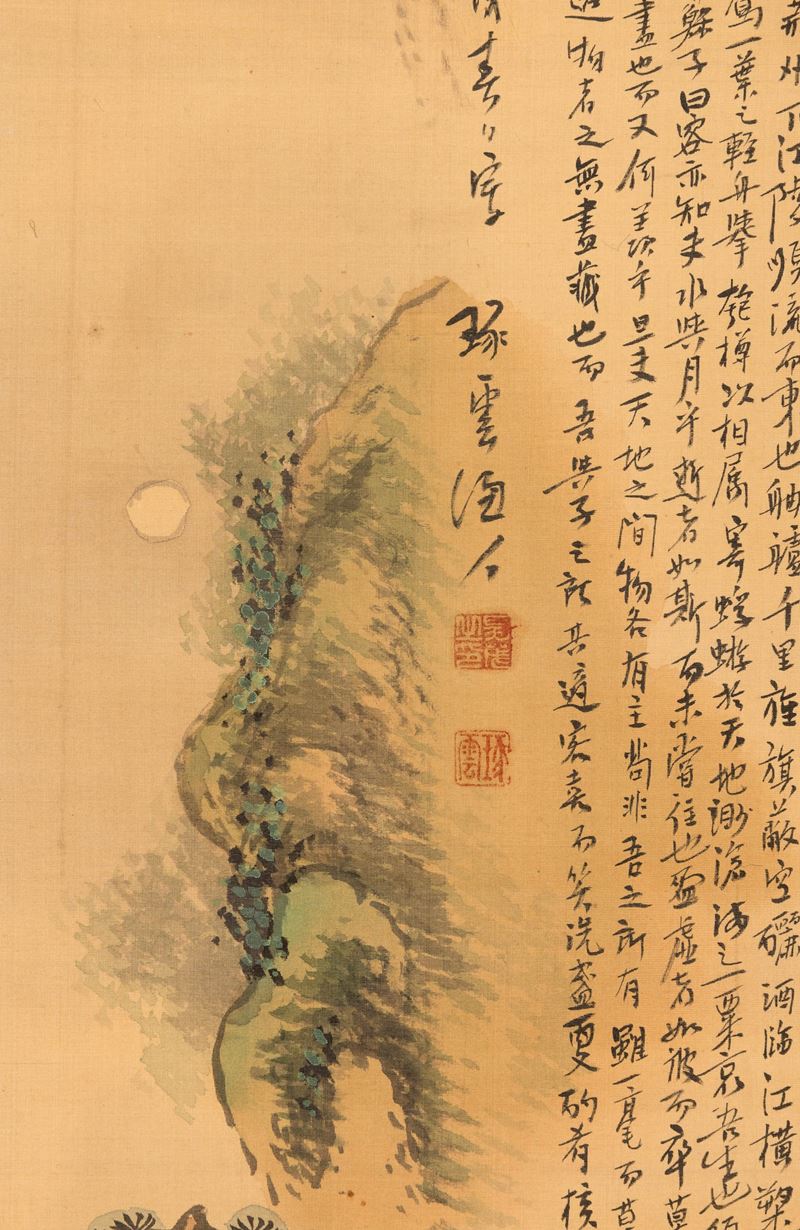 荊州下江陵順流而東也舳艫千里旌旗蔽空釃酒臨江橫槊
駕一葉之輕舟擧匏樽以相属寄蜉蝣於天地渺滄海之一粟哀吾生也
蘇子曰客亦知夫水與月乎逝者如斯而未嘗往也盈虛者如彼而卒莫
盡也而又何羨乎且夫天地之間物各有主苟非吾之所有雖一毫而莫
造物者之無盡藏也而吾與子之所共適客喜而笑洗盞更酌肴核
春日寫 琢雲 人
琢雲